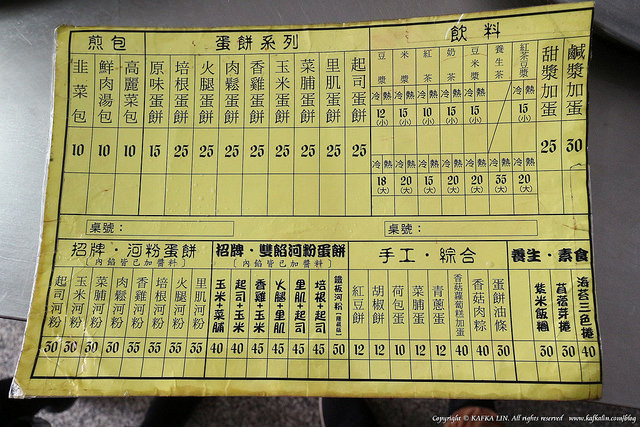 煎包
韭菜包 10
鮮肉湯包 10
高麗菜包 10
蛋餅系列
原味蛋餅 15
培根蛋餅 25
火腿蛋餅 25
肉鬆蛋餅 25
香雞蛋餅 25
玉米蛋餅 25
菜脯蛋餅 25
里肌蛋餅 25
起司蛋餅 25
飲料
豆漿 冷 熱 12 (小) 冷 熱 18 (大)
米漿 冷 熱 15 (小) 冷 熱 20 (大)
紅茶 冷 熱 10 (小) 冷 熱 15 (大)
奶茶 冷 熱 15 (小) 冷 熱 20 (大)
豆米漿 冷 熱 15 (小) 冷 熱 20 (大)
養生茶 冷 熱 35 (大)
紅茶豆漿 冷 熱 15 (小) 冷 熱 20 (大)
甜漿加蛋 25
鹹漿加蛋 30
桌號：
桌號：
招牌・河粉蛋餅
(內餡皆已加醬料)
起司河粉 30
玉米河粉 30
菜脯河粉 30
肉鬆河粉 30
香雞河粉 35
培根河粉 35
火腿河粉 35
里肌河粉 35
招牌・雙餡河粉蛋餅
(內餡皆已加醬料)
玉米+菜脯 40
起司+玉米 40
香雞+玉米 45
火腿+里肌 45
里肌+起司 45
培根+起司 45
鐵板河粉 50
手工・綜合
紅豆餅 12
胡椒餅 12
荷包蛋 10
菜脯蛋 12
青蔥蛋 12
香菇蘿蔔糕加蛋 40
香菇肉粽 40
蛋餅油條 30
養生・素食
紫米飯糰 30
苜蓿芽捲 30
海苔三色捲 40
Copyright © KAFKA LIN. All rights reserved www.kafkalin.com/blog